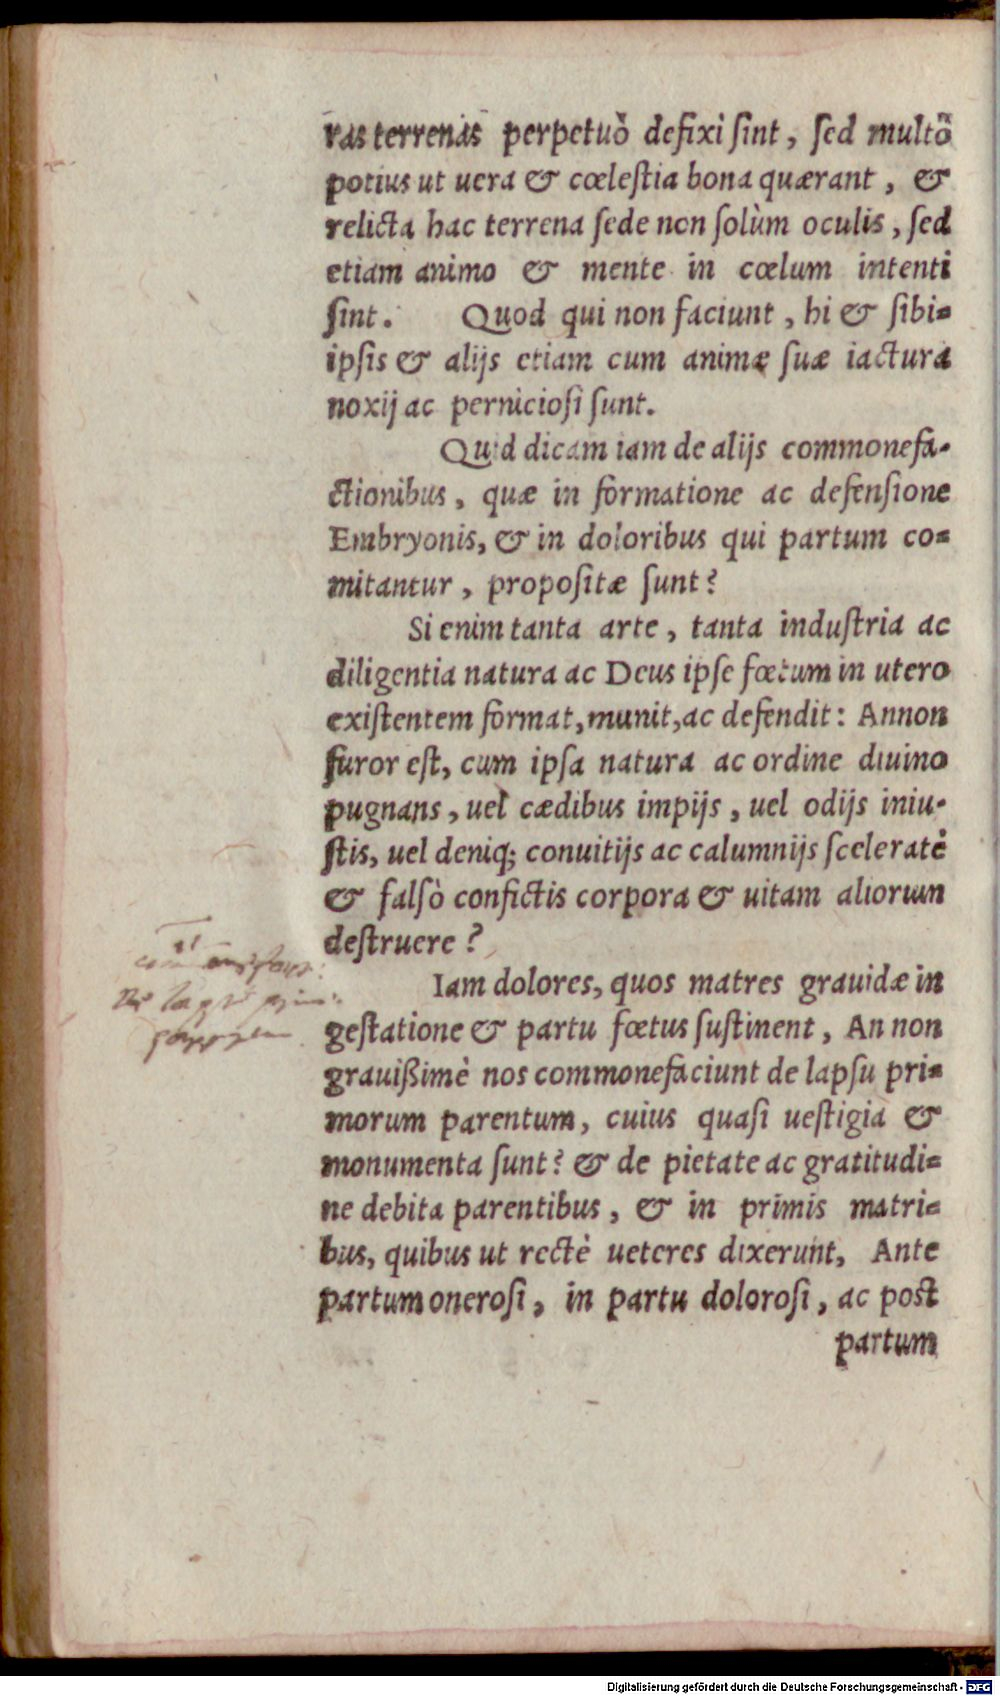 ras terrenas perpetuò defixi sint, sed multò
potius ut uera & cœlestia bona quærant, &
relicta hac terrena sede non solùm oculis, sed
etiam animo & mente in cœlum intenti
sint. Quod qui non faciunt, hi & sibi=
ipsis & alijs etiam cum animæ suæ iactura
noxij ac perniciosi sunt.
Quid dicam iam de alijs commonefa-
ctionibus, quæ in formatione ac defensione
Embryonis, & in doloribus qui partum co=
mitantur, propositæ sunt?
Si enim tanta arte, tanta industria ac
diligentia natura ac Deus ipse fœtum in utero
existentem format, munit, ac defendit: Annon
furor est, cum ipsa natura ac ordine diuino
pugnans, uel cædibus impijs, uel odijs iniu-
stis, uel deniq; conuitijs ac calumnijs sceleratè
& falsò confictis corpora & uitam aliorum
destruere?
Iam dolores, quos matres grauidæ in
gestatione & partu fœtus sustinent, An non
grauißimè nos commonefaciunt de lapsu pri=
morum parentum, cuius quasi uestigia &
monumenta sunt? & de pietate ac gratitudi=
ne debita parentibus, & in primis matri=
bus, quibus ut rectè ueteres dixerunt, Ante
partum onerosi, in partu dolorosi, ac post
partum
Digitalisierung gefördert durch die Deutsche Forschungsgemeinschaft - DFG